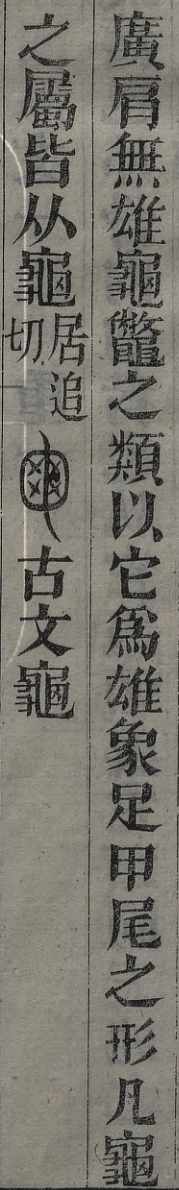 廣肩無雄龜鼈之類以它爲雄象足甲尾之形凡龜
之屬皆从龜居追切古文龜